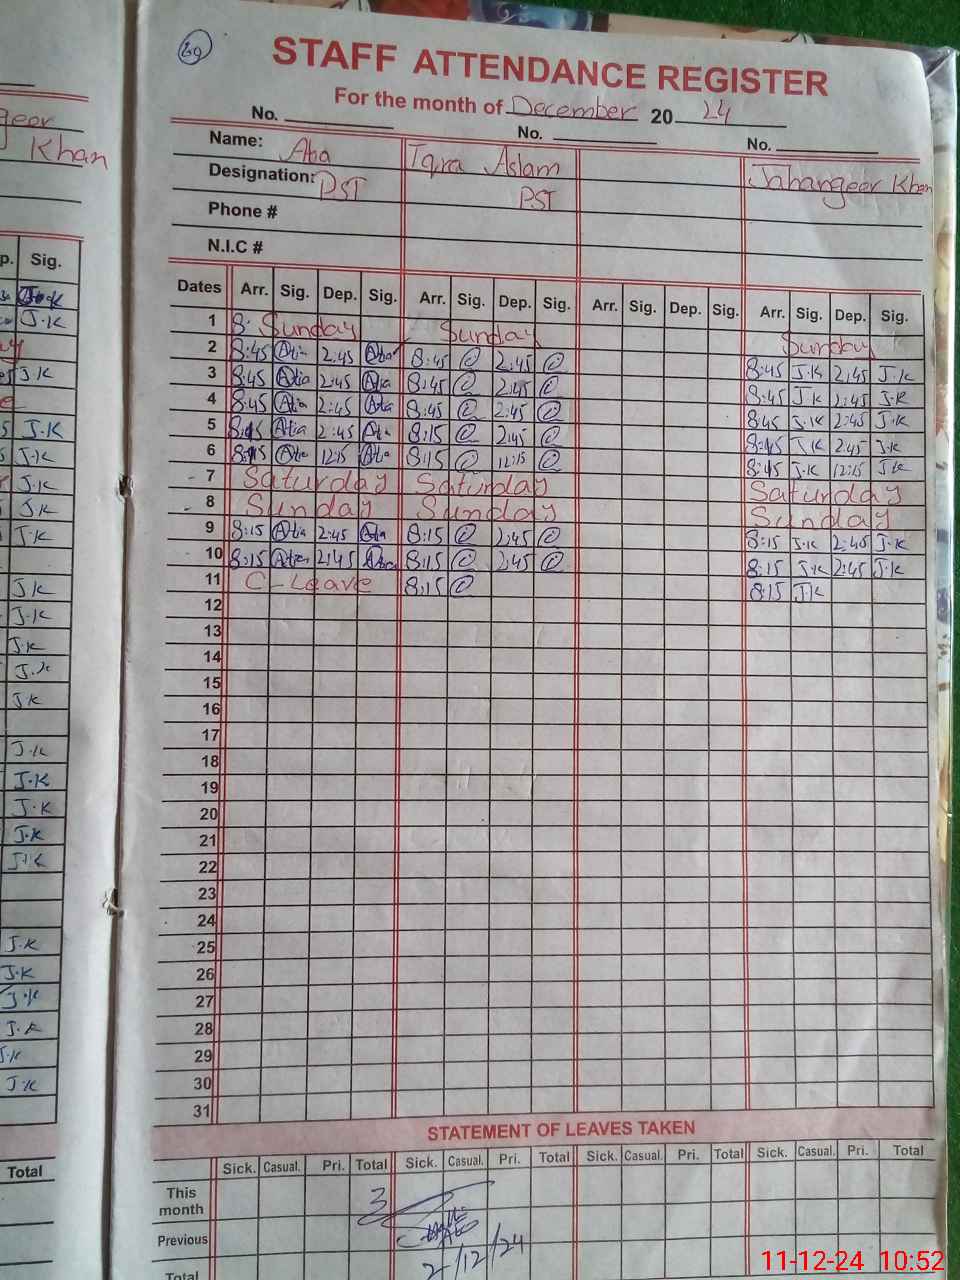 89
STAFF ATTENDANCE REGISTER
For the month of December 20 24
No. No. No.
Name: Atia Iqra Aslam Jahangeer Khan
Designation: PST PST
Phone #
N.I.C #
Dates Arr. Sig. Dep. Sig. Arr. Sig. Dep. Sig. Arr. Sig. Dep. Sig. Arr. Sig. Dep. Sig.
1 8: Sunday Sunday Sunday
2 8:45 Atia 2:45 Atia 8:45 2:45 8:45 J.K 2:45 J.K
3 8:45 Atia 2:45 Atia 8:45 2:45 8:45 J.K 2:45 J.K
4 8:45 Atia 2:45 Atia 8:45 2:45 8:45 J.K 2:45 J.K
5 8:15 Atia 2:45 Atia 8:15 2:45 8:15 J.K 2:45 J.K
6 8:15 Atia 12:15 Atia 8:15 12:15 8:15 J.K 12:15 J.K
7 Saturday Saturday Saturday
8 Sunday Sunday Sunday
9 8:15 Atia 2:45 Atia 8:15 2:45 8:15 J.K 2:45 J.K
10 8:15 Atia 2:45 Atia 8:15 2:45 8:15 J.K 2:45 J.K
11 C-Leave 8:15 8:15 J.K
12
13
14
15
16
17
18
19
20
21
22
23
24
25
26
27
28
29
30
31
STATEMENT OF LEAVES TAKEN
Sick. Casual. Pri. Total Sick. Casual. Pri. Total Sick. Casual. Pri. Total Sick. Casual. Pri. Total
This month 3
Previous
2/12/24
Total
Khan
p. Sig.
J.K
J.K
J.K
J.K
J.K
J.K
J.K
J.K
J.K
J.K
J.K
J.K
J.K
J.K
J.K
J.K
J.K
J.K
J.K
J.K
J.K
J.K
J.K
J.K
Total
11-12-24 10:52